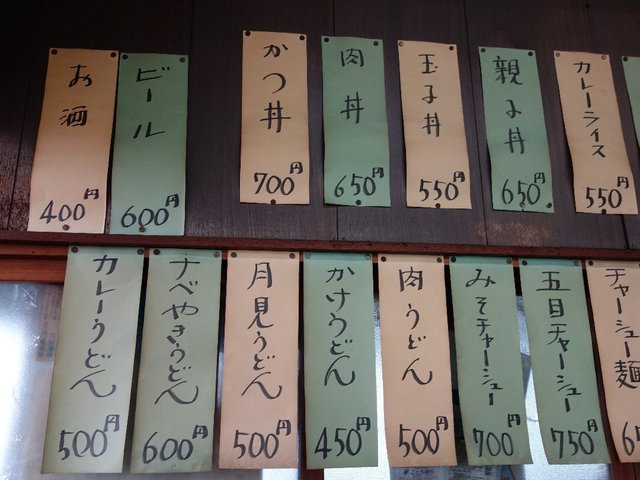 お酒
400円
ビール
600円
かつ丼
700円
肉丼
650円
玉子丼
550円
親子丼
650円
カレーライス
550円
カレーうどん
500円
ナベやきうどん
600円
月見うどん
500円
かけうどん
450円
肉うどん
500円
みそチャーシュー
700円
五目チャーシュー
750円
チャーシュー麺